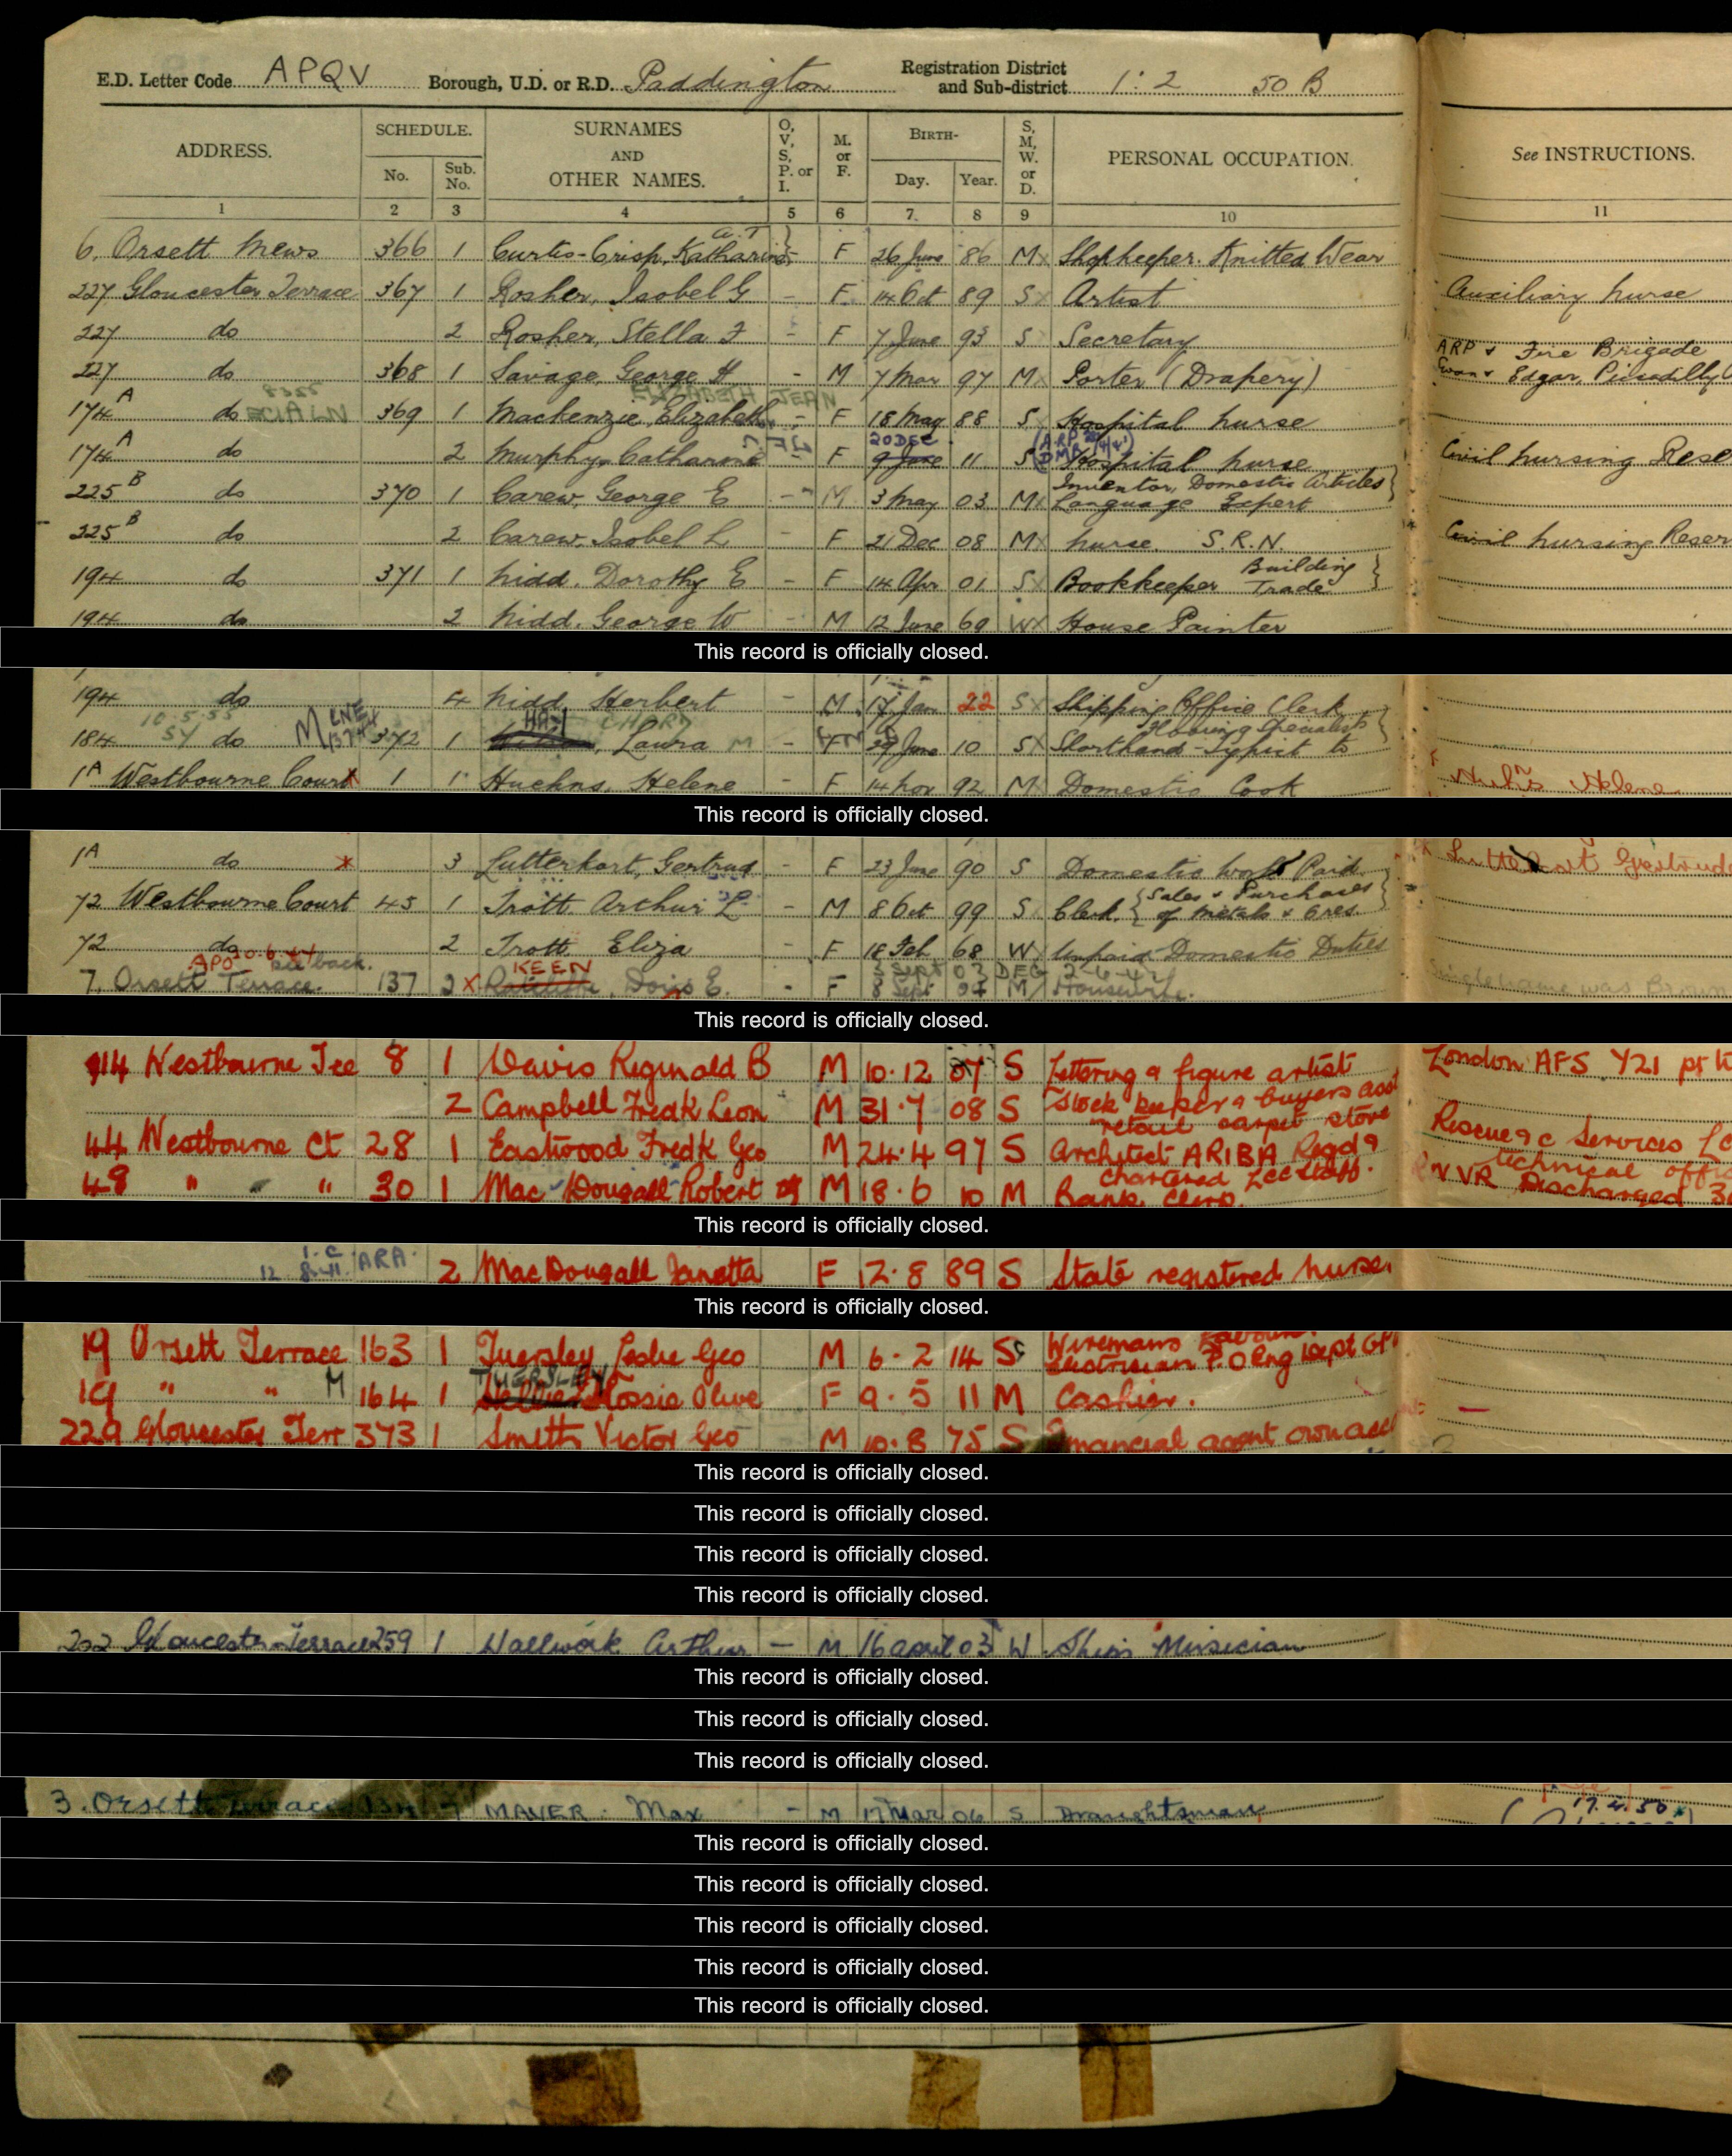 E.D. Letter Code APQV Borough, U.D. or R.D. Paddington Registration District and Sub-district 1:2 50 B
ADDRESS. SCHEDULE. No. Sub. No. SURNAMES AND OTHER NAMES. O, V, S, P. or I. M. or F. BIRTH- Day. Year. S, M, W. or D. PERSONAL OCCUPATION. See INSTRUCTIONS.
1 2 3 4 5 6 7. 8 9 10 11
6. Orsett Mews 366 1 Curtis-Crisp, Katharine - F 26 June 86 M Shopkeeper. Knitted Wear
227 Gloucester Terrace 367 1 Rosher, Isobel G - F 14 Oct 89 S Artist Auxiliary nurse
227 do 2 Rosher, Stella F - F 7 June 93 S Secretary
227 do 368 1 Savage, George H - M 7 Mar 97 M Porter (Drapery) ARP & Fire Brigade Swan & Edgar, Piccadilly
ELIZABETH JEAN
174A do 369 1 Mackenzie, Elizabeth - F 18 May 88 S Hospital nurse
20 DEC
174A do 2 Murphy, Catharine F 9 June 11 S Hospital nurse Civil nursing Rese
225B do 370 1 Carew, George E - M 3 May 03 M Inventor, Domestic Articles Language Expert
225B do 2 Carew, Isobel L - F 21 Dec 08 M nurse S.R.N. Civil nursing Reser
194 do 371 1 Nidd, Dorothy E - F 14 Apr 01 S Bookkeeper Building Trade
194 do 2 Nidd, George W - M 12 June 69 W House Painter
This record is officially closed.
194 do 4 Nidd, Herbert - M 17 Jan 22 S Shipping Office Clerk
184 do 372 1 Laura M - F 29 June 10 S Shorthand-Typist to Housing Specialists
1A Westbourne Court 1 1 Huehns, Helene - F 14 Nov 92 M Domestic Cook Helene
This record is officially closed.
1A do 3 Lutterkort, Gertrud - F 23 June 90 S Domestic Work Paid Gertrude
72 Westbourne Court 45 1 Trott, Arthur L - M 8 Oct 99 S Clerk, {Sales & Purchases of Metals & Ores.}
72 do 2 Trott, Eliza - F 18 Feb 68 W Unpaid Domestic Duties
APO 30.6.44 see back. KEEN
7. Orsett Terrace. 137 2 Doris E. - F 8 Sept M Housewife. Single name was Brown
This record is officially closed.
114 Westbourne Tce 8 1 Davis Reginald B M 10.12 07 S Lettering & figure artist London AFS Y21
2 Campbell Fredk Leon M 31.7 08 S Stock keeper & buyers asst retail carpet store
44 Westbourne Ct 28 1 Eastwood Fredk Geo M 24.4 97 S Architect ARIBA Regd & chartered LCC staff. Rescue &c Services technical
48 " " 30 1 MacDougall Robert M 18.6 10 M Bank Clerk. Discharged
This record is officially closed.
ARA 2 MacDougall Janetta F 12.8 89 S State registered nurse.
This record is officially closed.
19 Orsett Terrace 163 1 Tuersley Leslie Geo M 6.2 14 S Wiremans P.O Eng Dept
TUERSLEY
19 " " M 164 1 Flossie Olive F 9.5 11 M Cashier.
229 Gloucester Terr 373 1 Smith Victor Geo M 10.8 75 S Financial agent own acc
This record is officially closed.
This record is officially closed.
This record is officially closed.
This record is officially closed.
202 Gloucester Terrace 259 1 Wallwork Arthur - M 16 April 03 W Ship's Musician
This record is officially closed.
This record is officially closed.
This record is officially closed.
3. Orsett Terrace MAYER. Max - M 17 Mar 06 S Draughtsman 17.4.50
This record is officially closed.
This record is officially closed.
This record is officially closed.
This record is officially closed.
This record is officially closed.